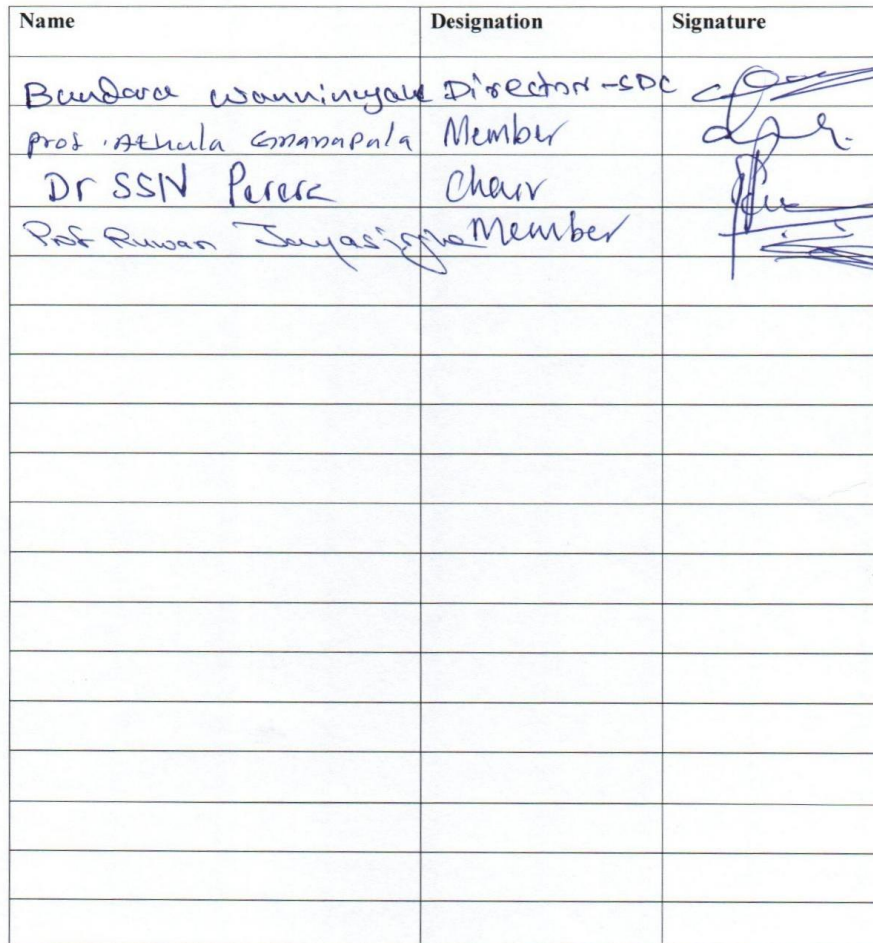 Name Designation Signature
Bandara Wanninayake Director - SDC
Prof. Athula Gnanapala Member
Dr SSN Perera Chair
Prof Ruwan Jayasinghe Member